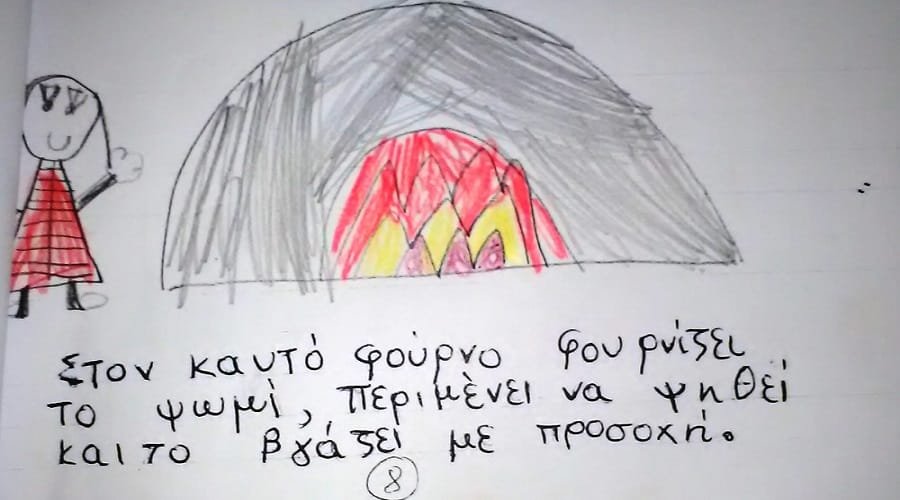 Στον καυτό φούρνο φουρνίζει
το ψωμί, περιμένει να ψηθεί
και το βγάζει με προσοχή.
8